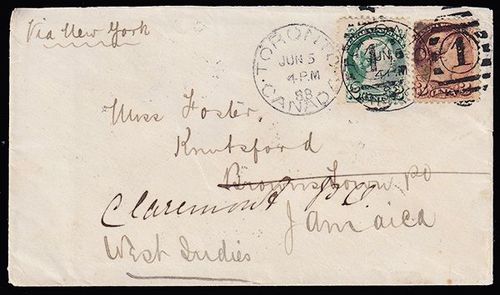 Via New York
TORONTO
JUN 5
4 P.M
88
CANADA
1
1
Miss Foster,
Knutsford
Brownstown PO
Claremont P.O.
Jamaica
West Indies